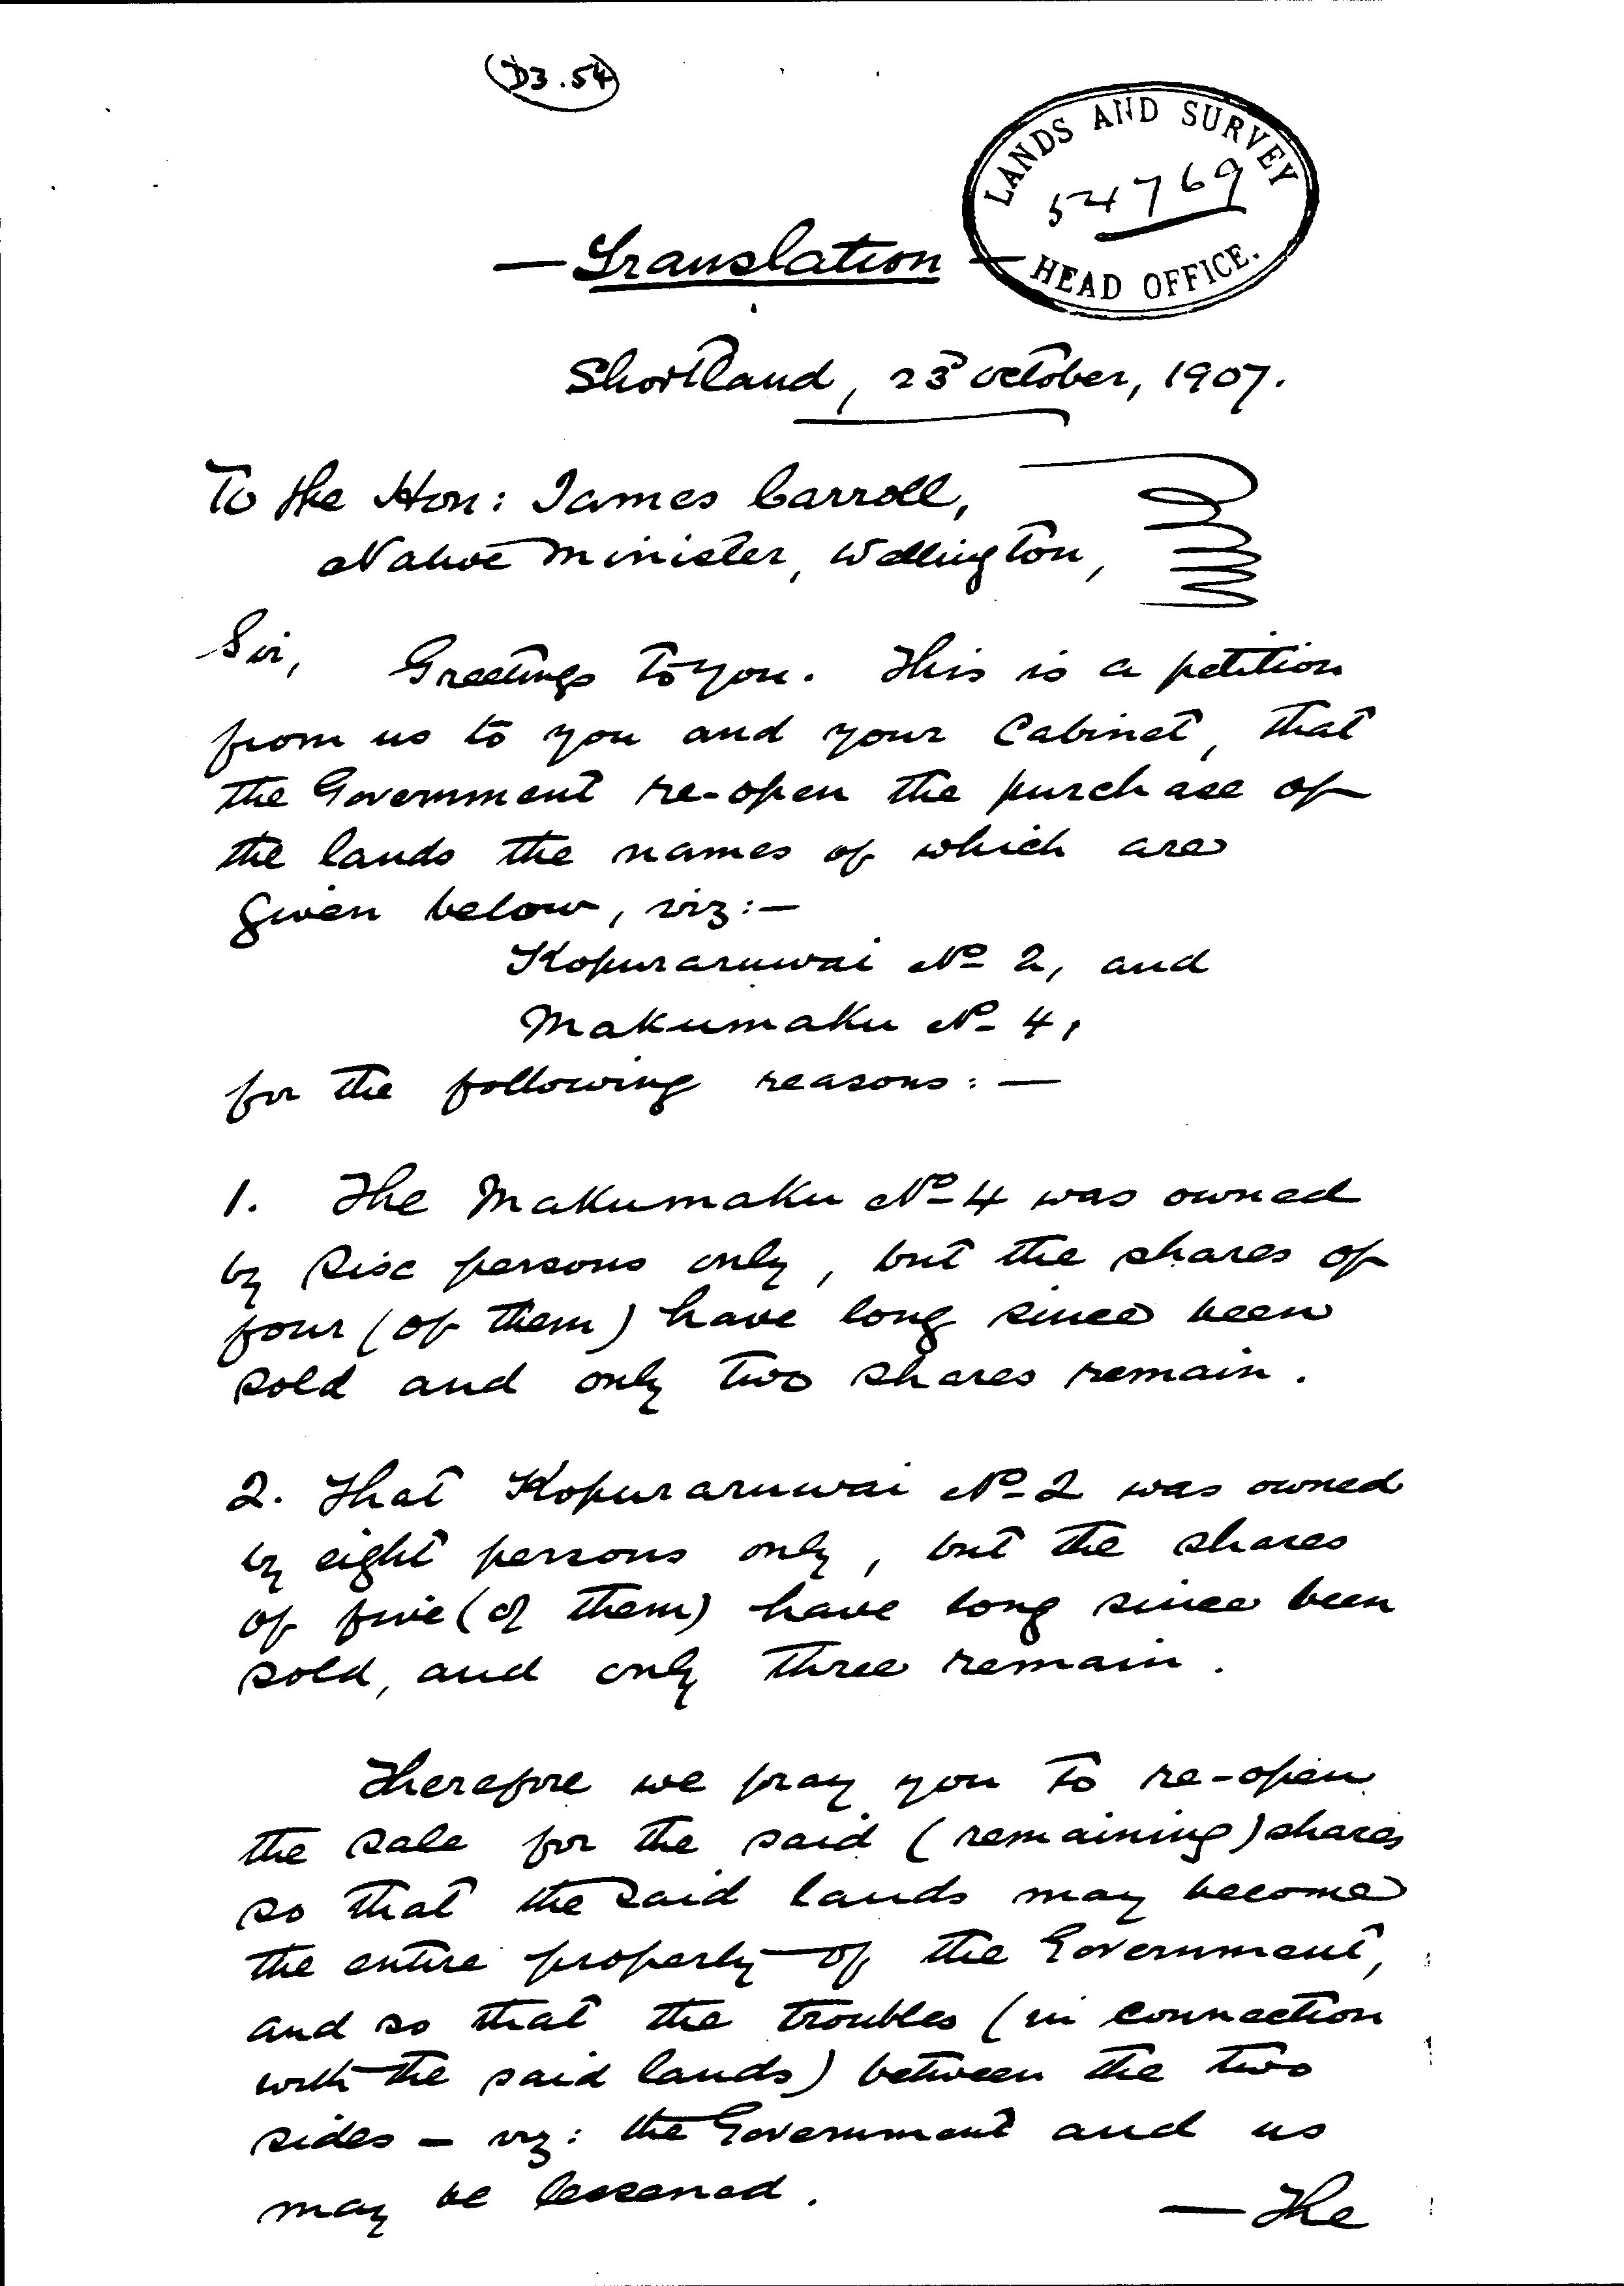 D3.54
LANDS AND SURVEY
54769
HEAD OFFICE.
— Translation —
Shortland, 23rd October, 1907.
To the Hon: James Carroll,
Native Minister, Wellington,
Sir, Greetings to you. This is a petition
from us to you and your Cabinet, that
the Government re-open the purchase of
the lands the names of which are
given below, viz:—
Kopuraruwai No 2, and
Makumaku No 4,
for the following reasons:—
1. The Makumaku No 4 was owned
by six persons only, but the shares of
four (of them) have long since been
sold and only two shares remain.
2. That Kopuraruwai No 2 was owned
by eight persons only, but the shares
of five (of them) have long since been
sold, and only three remain.
Therefore we pray you to re-open
the sale for the said (remaining) shares
so that the said lands may become
the entire property of the Government,
and so that the troubles (in connection
with the said lands) between the two
sides – viz: the Government and us
may be lessened.
— The